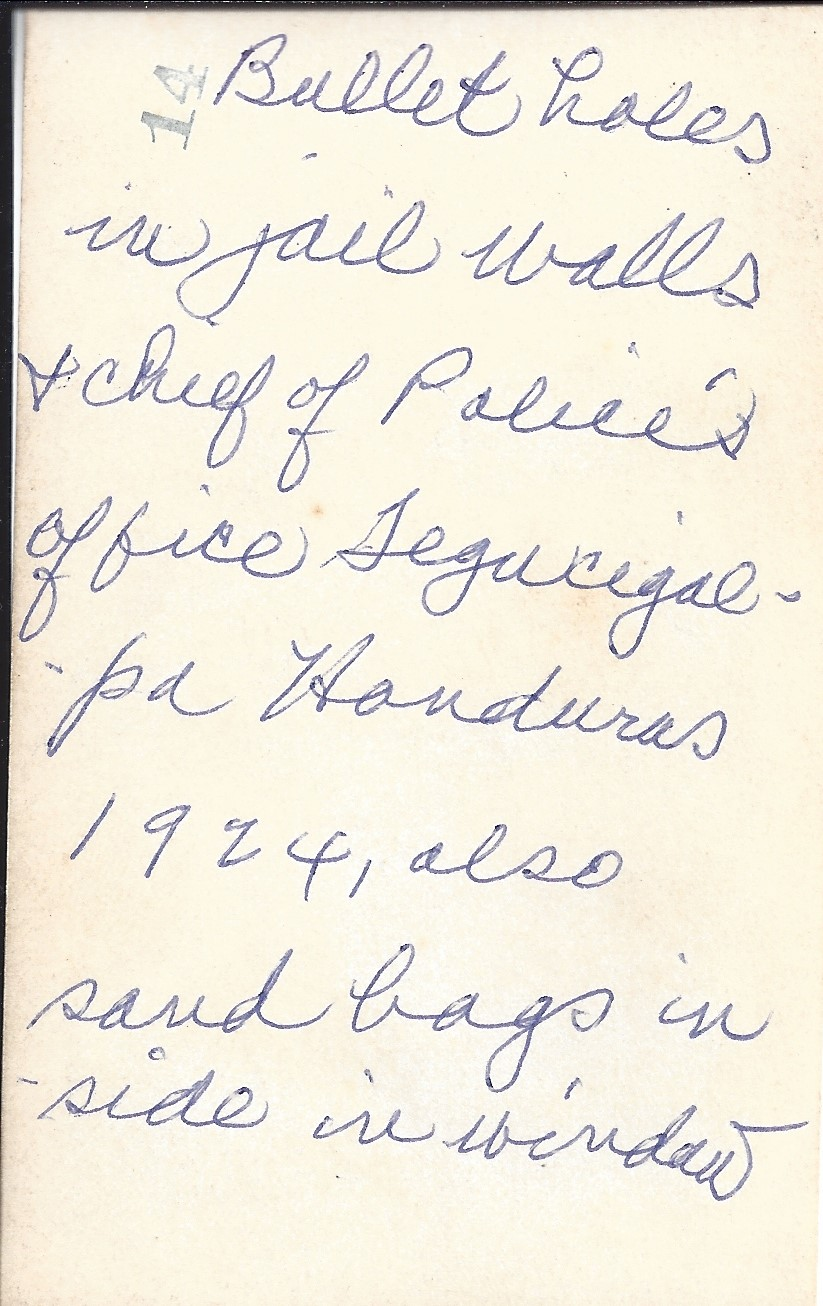 14
Bullet holes
in jail walls
+ chief of Police's
office Tegucigal-
-pa Honduras
1924, also
sand bags in
-side in window